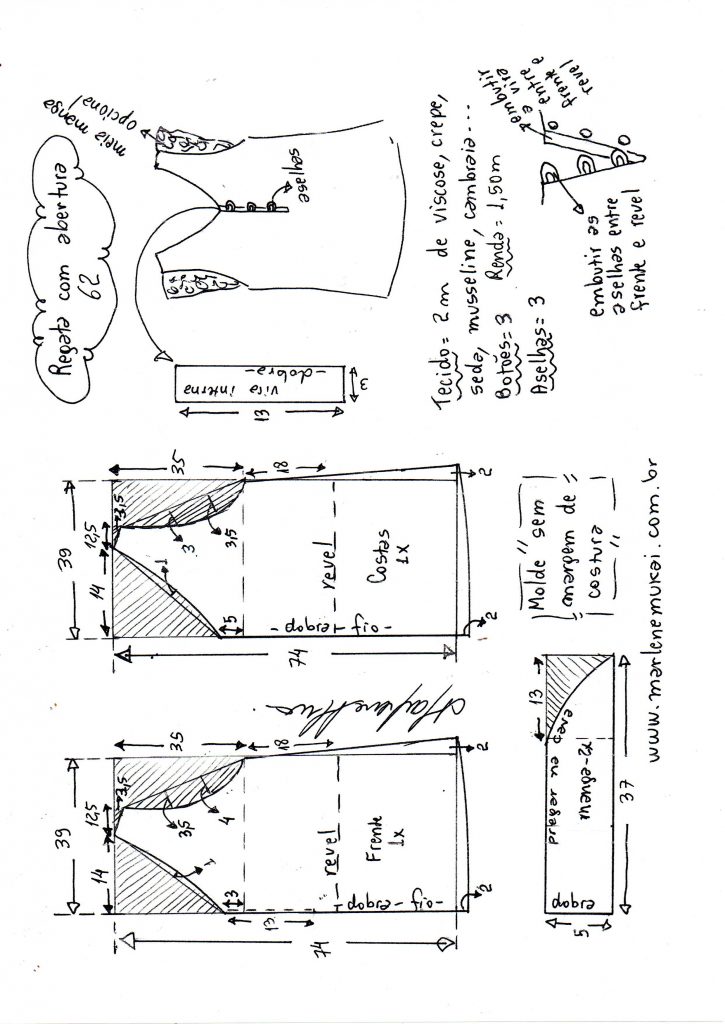 Regata com abertura
62
meia manga
opcional
aselhas
vira interna
-dobra-
13
3
Tecido = 2m de viscose, crepe,
seda, musseline, cambraia...
Botões = 3 Renda = 1,50m
Aselhas = 3
embutir
a vira
entre
frente e
revel
embutir as
aselhas entre
frente e revel
39
14
12,5
3,5
35
18
1
3
3,5
5
74
- revel -
Costas
1x
dobra - fio -
2
2
39
14
12,5
3,5
35
18
1
3,5
4
3
13
74
- revel -
Frente
1x
dobra - fio -
2
2
"Molde sem
margem de
costura"
13
pregar na cava
manga-2x
dobra
5
37
www.marlenemukai.com.br